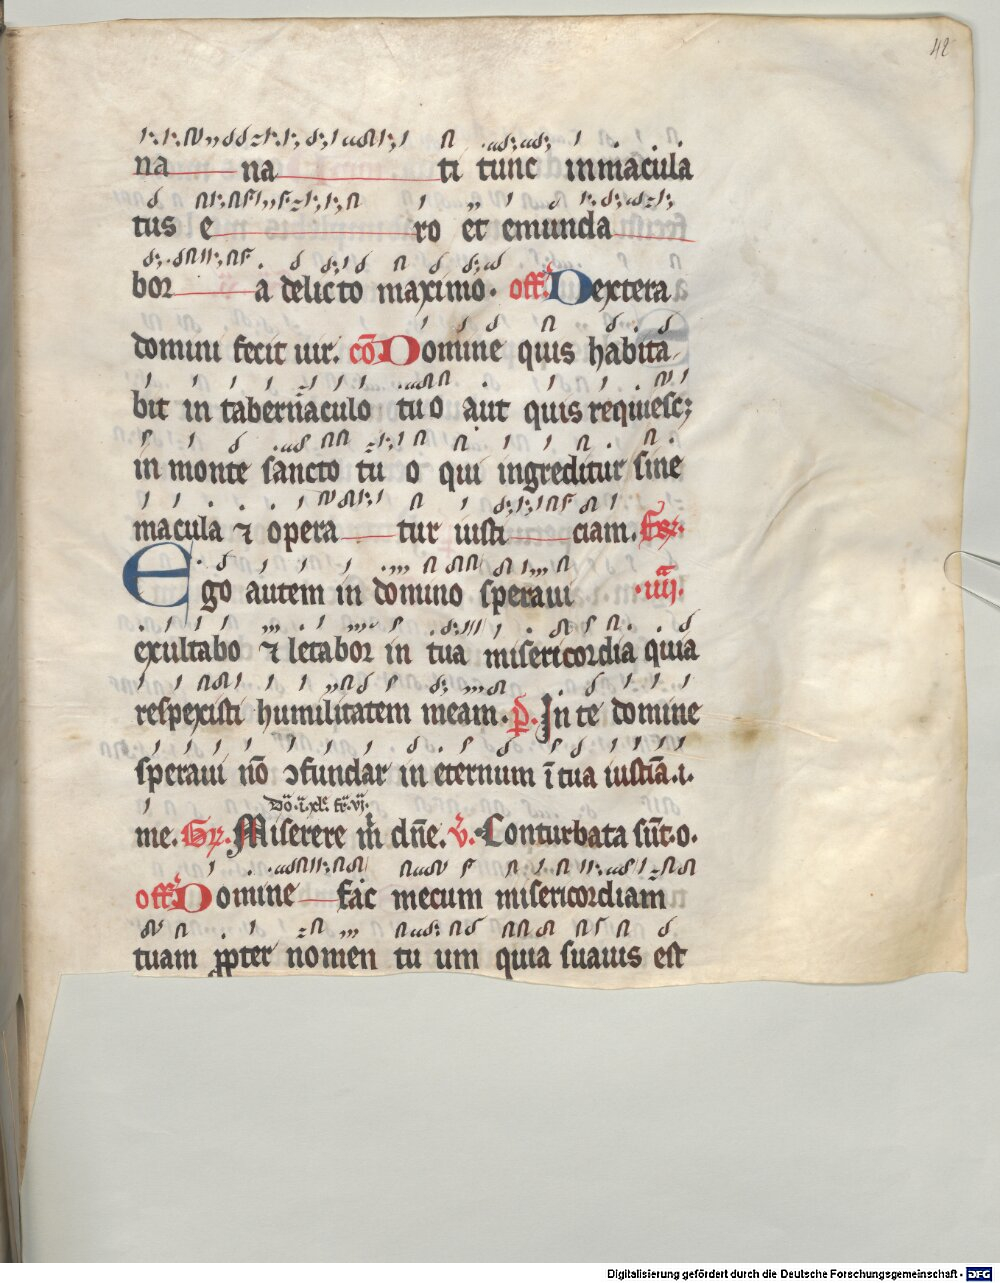 42
na na ti tunc inmacula
tus e ro et emunda
bor a delicto maximo. off. Dextera
domini fecit uir. cō Domine quis habita
bit in tabernaculo tuo aut quis requiesc;
in monte sancto tu o qui ingreditur sine
macula ⁊ opera tur iusti ciam. Fer.
Ego autem in domino speraui .iiij.
exultabo ⁊ letabor in tua misericordia quia
respexisti humilitatem meam. p̄. In te domine
speraui nō ↄfundar in eternum ī tua iustīa. i.
me. Gr. Miserere m̄ dn̄e. v̄. Conturbata sūt. o.
off. Domine fac mecum misericordiam
tuam ꝓpter nomen tu um quia suauis est
Digitalisierung gefördert durch die Deutsche Forschungsgemeinschaft - DFG